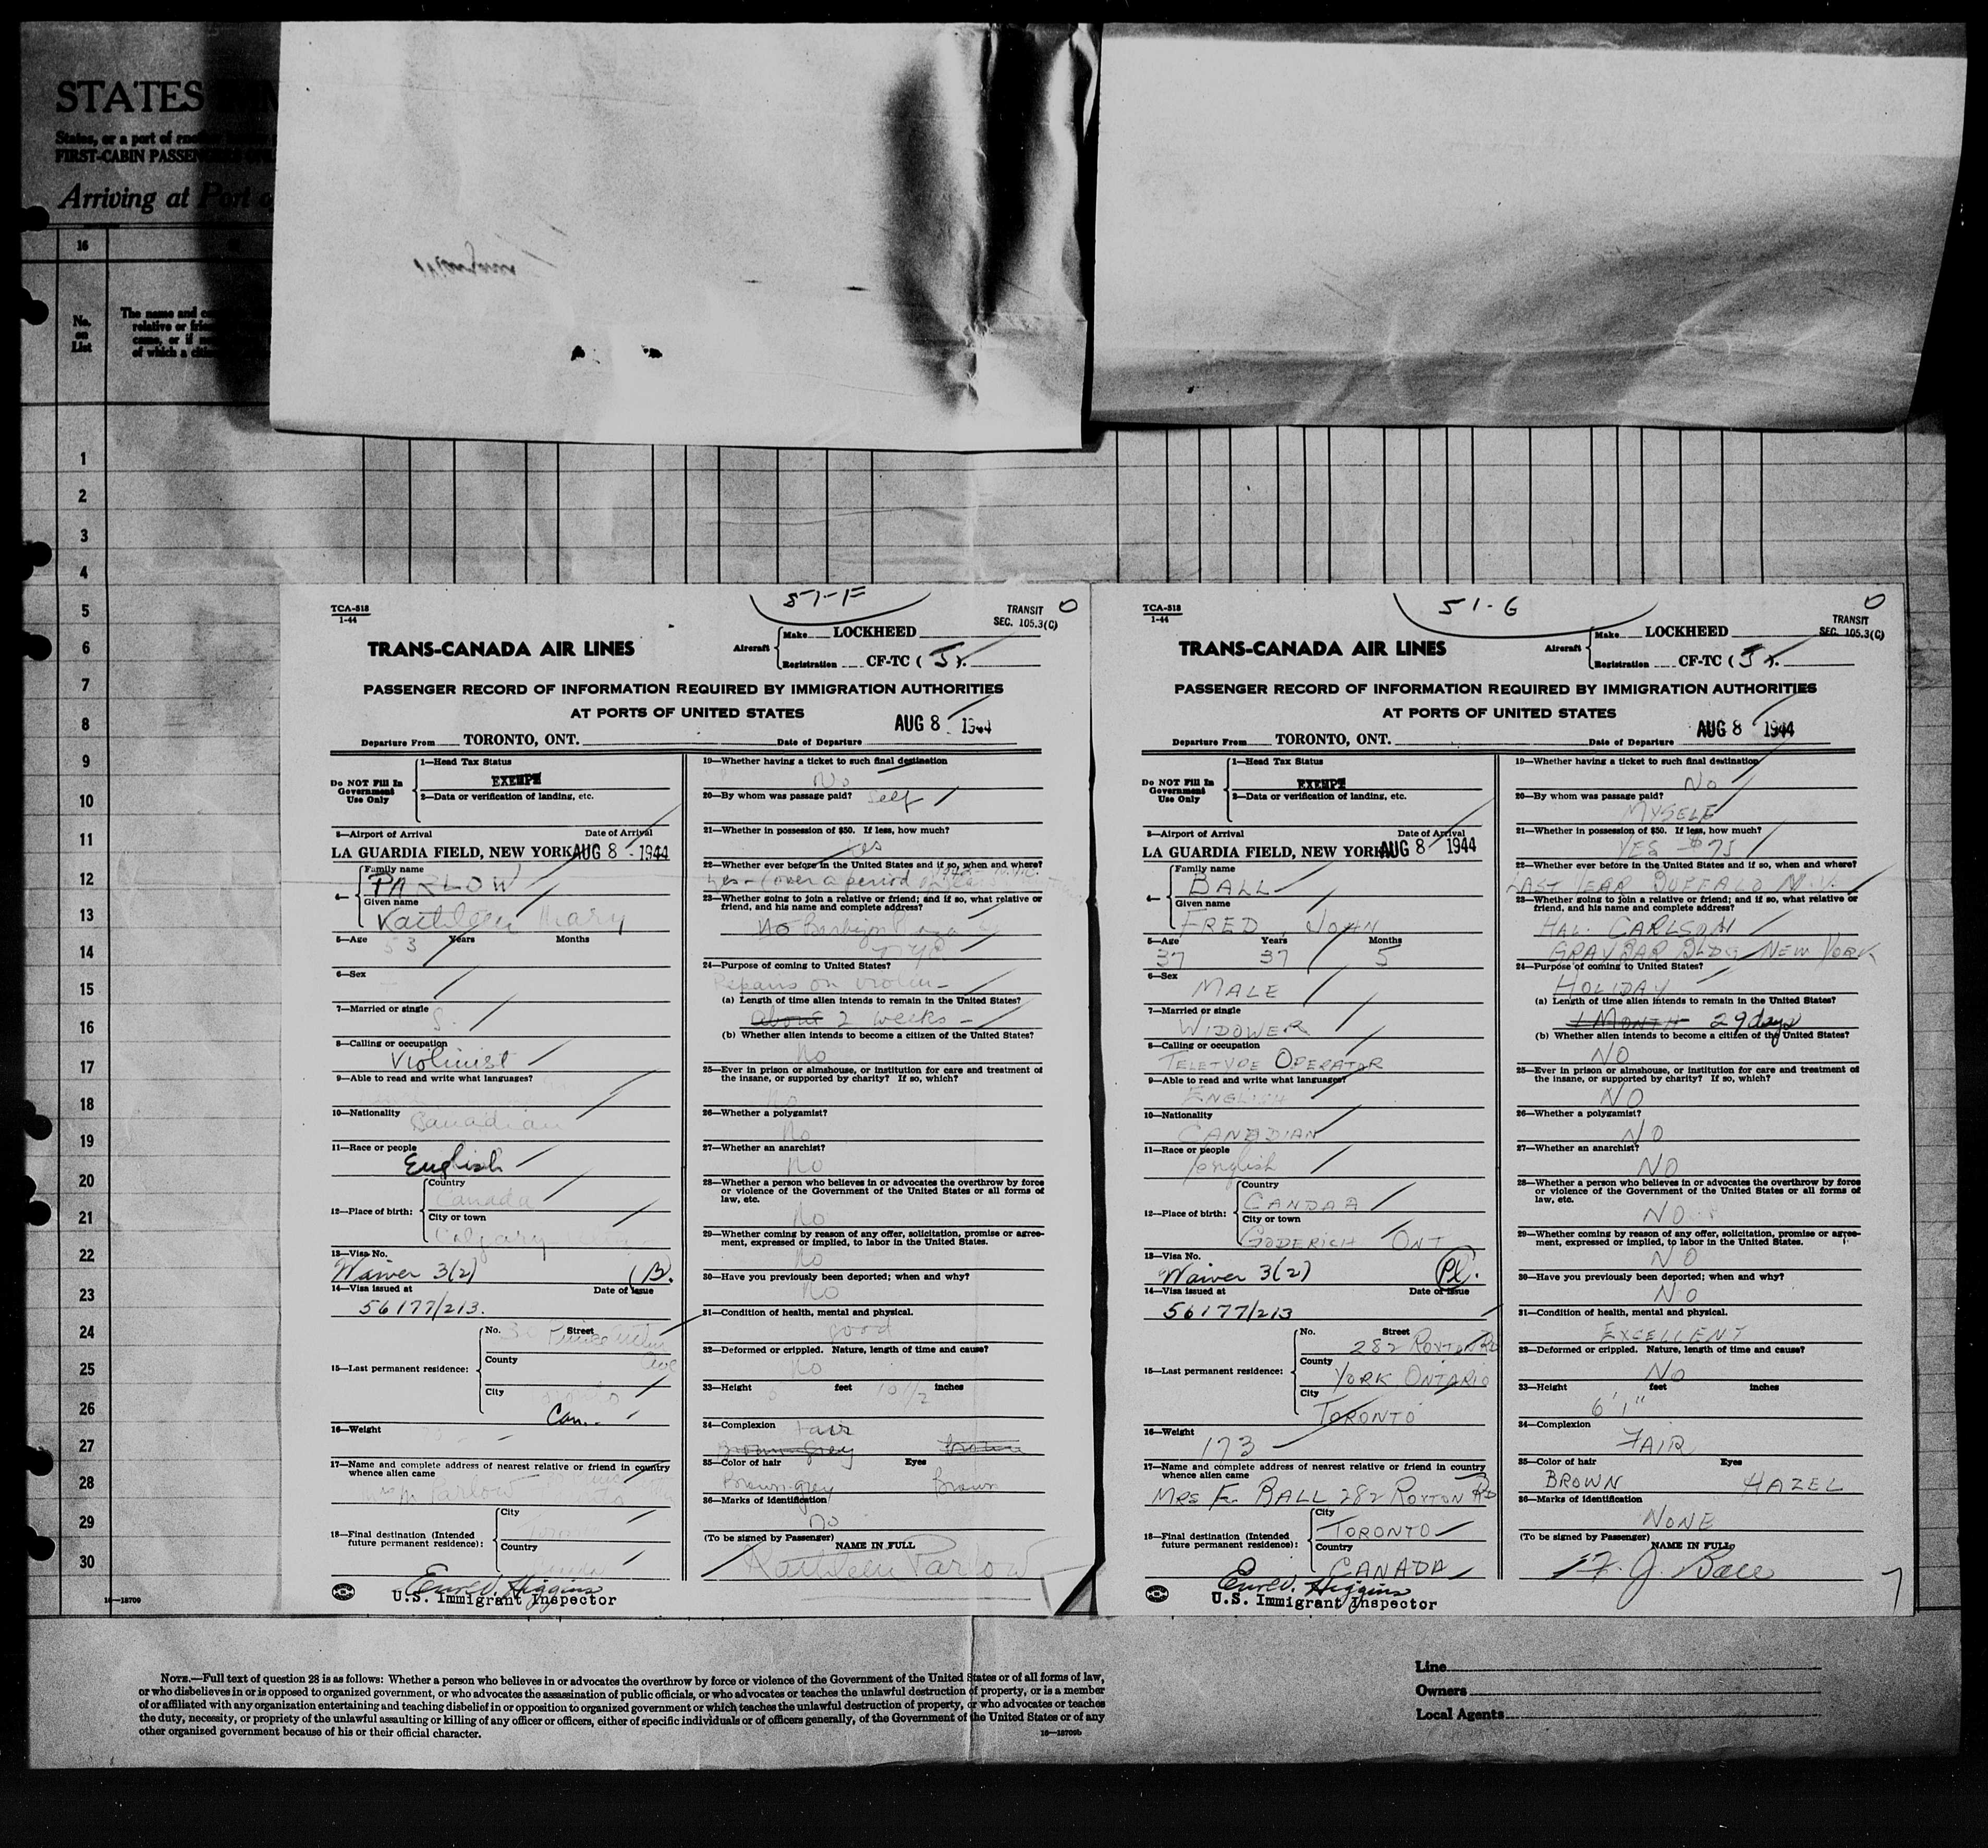 STATES
States, or a part of
FIRST-CABIN PASSEN
Arriving at Port o
16
No.
on
List
The name and
relative or
came, or if
of which a
1
2
3
4
5
6
7
8
9
10
11
12
13
14
15
16
17
18
19
20
21
22
23
24
25
26
27
28
29
30
16—18709
51-F
TCA-518
1-44
TRANSIT
SEC. 105.3(C)
O
TRANS-CANADA AIR LINES
Aircraft
Make LOCKHEED
Registration CF-TC (
PASSENGER RECORD OF INFORMATION REQUIRED BY IMMIGRATION AUTHORITIES
AT PORTS OF UNITED STATES
AUG 8 1944
Departure From TORONTO, ONT. Date of Departure
Do NOT Fill In
Government
Use Only
1—Head Tax Status
EXEMPT
2—Data or verification of landing, etc.
3—Airport of Arrival Date of Arrival
LA GUARDIA FIELD, NEW YORK AUG 8 - 1944
4—
Family name
PARLOW
Given name
Kathleen Mary
5—Age Years Months
53
6—Sex
7—Married or single
S.
8—Calling or occupation
Violinist
9—Able to read and write what languages?
10—Nationality
Canadian
11—Race or people
English
12—Place of birth:
Country
Canada
City or town
Calgary
13—Visa No.
Waiver 3(2)
14—Visa issued at Date of Issue
56177/213.
15—Last permanent residence:
No. Street
Prince Arthur
Ave
County
City
Can.
16—Weight
17—Name and complete address of nearest relative or friend in country
whence alien came
M Parlow
18—Final destination (Intended
future permanent residence):
City
Toronto
Country
U.S. Immigrant Inspector
19—Whether having a ticket to such final destination
No
20—By whom was passage paid? Self
21—Whether in possession of $50. If less, how much?
Yes
22—Whether ever before in the United States and if so, when and where?
Yes - (over a period of
23—Whether going to join a relative or friend; and if so, what relative or
friend, and his name and complete address?
No Barbizon Plaza
NYC
24—Purpose of coming to United States?
Repairs on violin -
(a) Length of time alien intends to remain in the United States?
about 2 weeks -
(b) Whether alien intends to become a citizen of the United States?
No
25—Ever in prison or almshouse, or institution for care and treatment of
the insane, or supported by charity? If so, which?
No
26—Whether a polygamist?
No
27—Whether an anarchist?
No
28—Whether a person who believes in or advocates the overthrow by force
or violence of the Government of the United States or all forms of
law, etc.
No
29—Whether coming by reason of any offer, solicitation, promise or agree-
ment, expressed or implied, to labor in the United States.
No
30—Have you previously been deported; when and why?
No
31—Condition of health, mental and physical.
good
32—Deformed or crippled. Nature, length of time and cause?
No
33—Height feet 10 1/2 inches
34—Complexion Fair
Brown-Grey Brown
35—Color of hair Eyes
Brown-grey Brown
36—Marks of identification
no
(To be signed by Passenger) NAME IN FULL
Kathleen Parlow
51-G
TCA-518
1-44
O
TRANSIT
SEC. 105.3(C)
TRANS-CANADA AIR LINES
Aircraft
Make LOCKHEED
Registration CF-TC (
PASSENGER RECORD OF INFORMATION REQUIRED BY IMMIGRATION AUTHORITIES
AT PORTS OF UNITED STATES
AUG 8 1944
Departure From TORONTO, ONT. Date of Departure
Do NOT Fill In
Government
Use Only
1—Head Tax Status
EXEMPT
2—Data or verification of landing, etc.
3—Airport of Arrival Date of Arrival
LA GUARDIA FIELD, NEW YORK AUG 8 1944
4—
Family name
BALL
Given name
FRED, JOHN
5—Age Years Months
37 37 5
6—Sex
MALE
7—Married or single
WIDOWER
8—Calling or occupation
TELETYPE OPERATOR
9—Able to read and write what languages?
ENGLISH
10—Nationality
CANADIAN
11—Race or people
English
12—Place of birth:
Country
CANDAA
City or town
GODERICH ONT
13—Visa No.
Waiver 3(2)
14—Visa issued at Date of Issue
56177/213
15—Last permanent residence:
No. Street
282 ROXTON RD
County
YORK, ONTARIO
City
TORONTO
16—Weight
173
17—Name and complete address of nearest relative or friend in country
whence alien came
MRS F. BALL 282 ROXTON RD
18—Final destination (Intended
future permanent residence):
City
TORONTO
Country
CANADA
U.S. Immigrant Inspector
19—Whether having a ticket to such final destination
No
20—By whom was passage paid?
MYSELF
21—Whether in possession of $50. If less, how much?
YES $75
22—Whether ever before in the United States and if so, when and where?
LAST YEAR BUFFALO N.Y.
23—Whether going to join a relative or friend; and if so, what relative or
friend, and his name and complete address?
HAL. CARLSON
GRAYBAR BLDG NEW YORK
24—Purpose of coming to United States?
HOLIDAY
(a) Length of time alien intends to remain in the United States?
1 MONTH 29 days
(b) Whether alien intends to become a citizen of the United States?
NO
25—Ever in prison or almshouse, or institution for care and treatment of
the insane, or supported by charity? If so, which?
NO
26—Whether a polygamist?
NO
27—Whether an anarchist?
NO
28—Whether a person who believes in or advocates the overthrow by force
or violence of the Government of the United States or all forms of
law, etc.
NO
29—Whether coming by reason of any offer, solicitation, promise or agree-
ment, expressed or implied, to labor in the United States.
NO
30—Have you previously been deported; when and why?
NO
31—Condition of health, mental and physical.
EXCELLENT
32—Deformed or crippled. Nature, length of time and cause?
NO
33—Height feet inches
6' 1"
34—Complexion
FAIR
35—Color of hair Eyes
BROWN HAZEL
36—Marks of identification
NONE
(To be signed by Passenger) NAME IN FULL
F. J. Ball
NOTE.—Full text of question 28 is as follows: Whether a person who believes in or advocates the overthrow by force or violence of the Government of the United States or of all forms of law,
or who disbelieves in or is opposed to organized government, or who advocates the assassination of public officials, or who advocates or teaches the unlawful destruction of property, or is a member
of or affiliated with any organization entertaining and teaching disbelief in or opposition to organized government or which teaches the unlawful destruction of property, or who advocates or teaches
the duty, necessity, or propriety of the unlawful assaulting or killing of any officer or officers, either of specific individuals or of officers generally, of the Government of the United States or of any
other organized government because of his or their official character.
16—18709b
Line
Owners
Local Agents